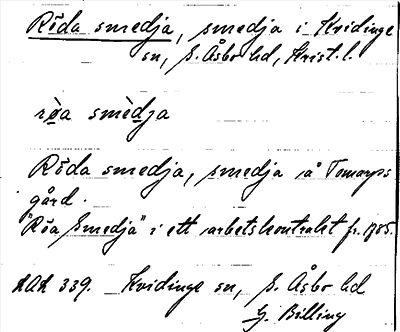 Röda smedja, smedja i Kvidinge
sn, S. Åsbo hd, Krist. l.
rö̀a smèdja
Röda smedja, smedja å Tomarps
gård.
"Röa Smedja" i ett arbetskontrakt fr. 1785.
LAL 339. Kvidinge sn, S. Åsbo hd
G. Billing